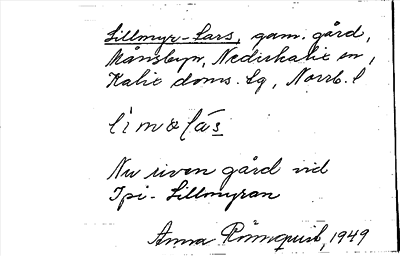 Lillmyr-Lars, gam. gård,
Månsbyn, Nederkalix sn,
Kalix doms. Lg, Norrb. l
Nu riven gård vid
Ipi-Lillmyran
Anna Rönnquist, 1949